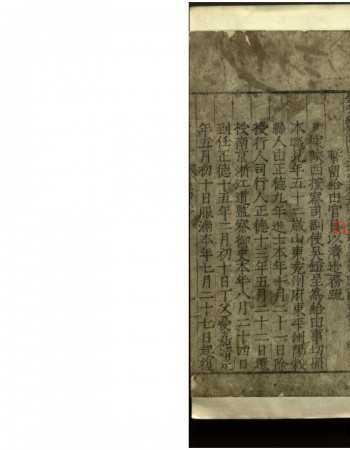 暫留給由官員以濟邊務疏
按察司副使呈為給由事切照
本職見年五十二歲山東兗州府東平州陽穀
縣人由正德九年進士本年十月十一日除
授行人司行人正德十三年五月二十二日選
授南京浙江道監察御史本年八月二十四日
到任正德十五年二月初十日丁父憂
年五月初十日服滿本年七月二十七日起復